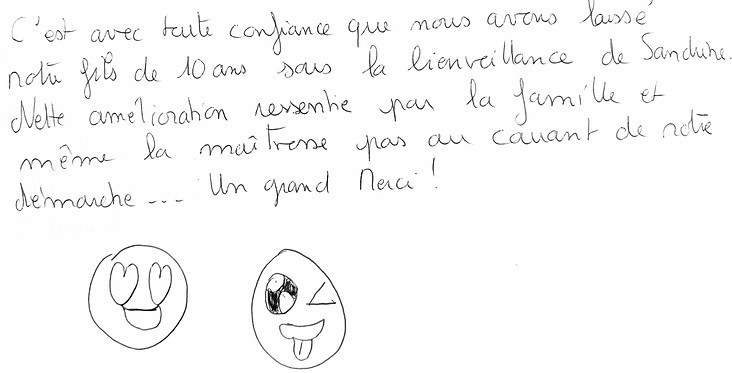 C'est avec toute confiance que nous avons laissé
notre fils de 10 ans sous la bienveillance de Sandrine.
Nette amélioration ressentie par la famille et
même la maîtresse pas au courant de notre
démarche... Un grand Merci !